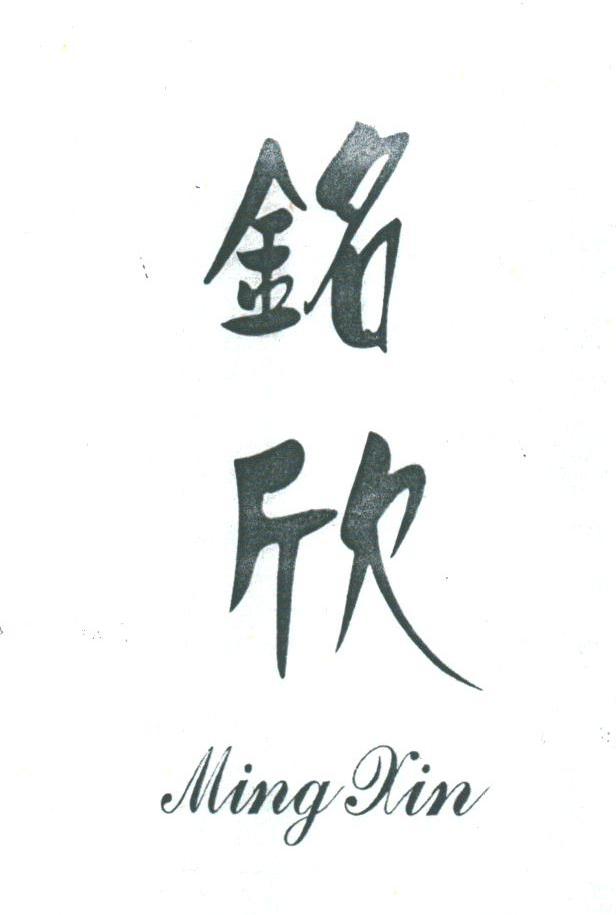 銘
欣
Ming Xin